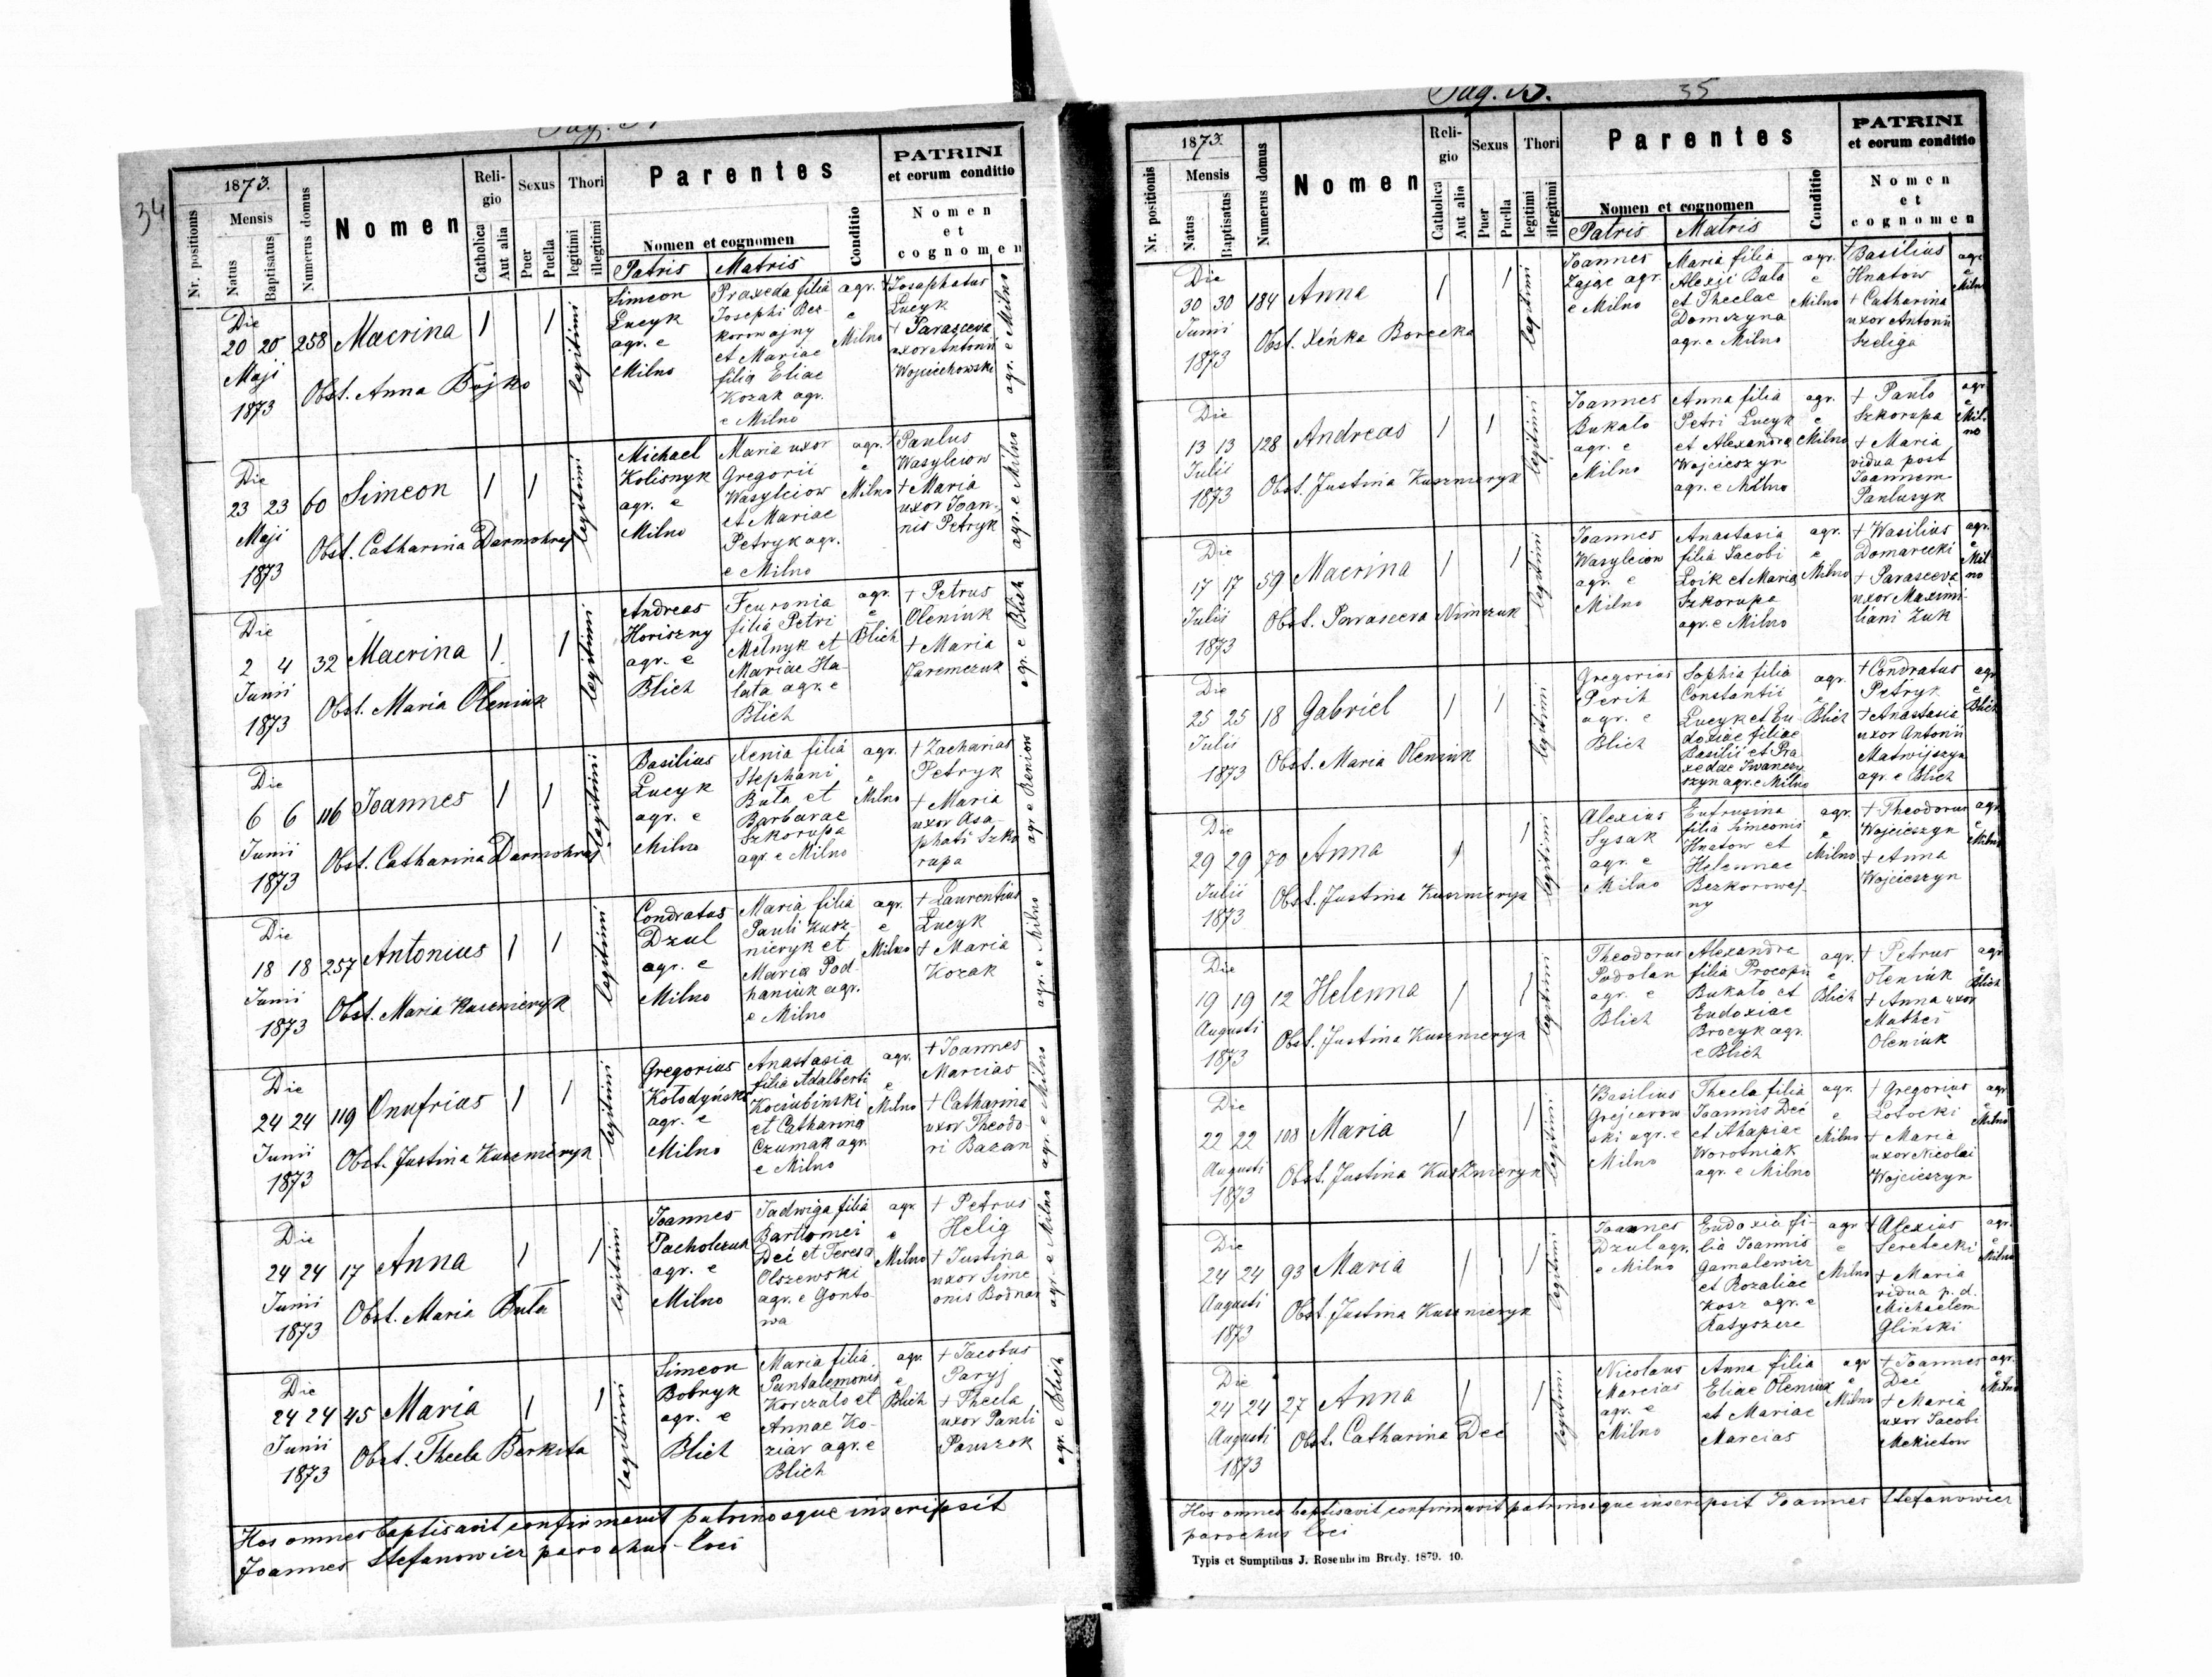 34
1873.
Nr. positionis
Mensis
Natus
Baptisatus
Numerus domus
Nomen
Religio
Catholica
Aut alia
Sexus
Puer
Puella
Thori
legitimi
illegitimi
Parentes
Nomen et cognomen
Patris
Matris
Conditio
PATRINI
et eorum conditio
Nomen
et
cognomen
Die
20 20 258 Macrina 1 1 legitimi
Maji
1873
Obst. Anna Bojko
Simeon
Lucyk
agr. e
Milno
Praxeda filia
Josephi Bez-
korowajny
et Mariae
filia Eliae
Kozak agr.
e Milno
agr.
e
Milno
+ Josaphatus
Lucyk
+ Parasceva
uxor Antonii
Wojciechowski
agr. e Milno
Die
23 23 60 Simeon 1 1 legitimi
Maji
1873
Obst. Catharina Darmohraj
Michael
Kolisnyk
agr. e
Milno
Maria uxor
Gregorii
Wasylciow
et Mariae
Petryk agr.
e Milno
agr.
e
Milno
+ Paulus
Wasylciow
+ Maria
uxor Joan-
nis Petryk
agr. e Milno
Die
2 4 32 Macrina 1 1 legitimi
Junii
1873
Obst. Maria Oleniuk
Andreas
Horiszny
agr. e
Blich
Feuronia
filia Petri
Melnyk et
Mariae Ha-
lata agr. e
Blich
agr.
e
Blich
+ Petrus
Oleniuk
+ Maria
Jaremczuk
agr. e Blich
Die
6 6 116 Joannes 1 1 legitimi
Junii
1873
Obst. Catharina Darmohraj
Basilius
Lucyk
agr. e
Milno
Xenia filia
Stephani
Buta et
Barbarae
Szkorupa
agr. e Milno
agr.
e
Milno
+ Zacharias
Petryk
+ Maria
uxor Asa-
phati Szko
rupa
agr e Reniow
Die
18 18 257 Antonius 1 1 legitimi
Junii
1873
Obst. Maria Kuszmeryk
Condratus
Dzul
agr. e
Milno
Maria filia
Pauli Kusz-
nieryk et
Maria Pod-
haniuk agr.
e Milno
agr.
e
Milno
+ Laurentius
Lucyk
+ Maria
Kozak
agr. e Milno
Die
24 24 119 Onufrius 1 1 legitimi
Junii
1873
Obst. Justina Kuszmeryk
Gregorius
Kołodyński
agr. e
Milno
Anastasia
filia Adalberti
Kociubinski
et Catharina
Czumak agr.
e Milno
agr.
e
Milno
+ Joannes
Marcias
+ Catharina
uxor Theodo-
ri Bazan
agr. e Milno
Die
24 24 17 Anna 1 1 legitimi
Junii
1873
Obst. Maria Buta
Joannes
Pacholczuk
agr. e
Milno
Jadwiga filia
Bartlomei
Deć et Teresa
Olszewski
agr. e Gonto-
wa
agr.
e
Milno
+ Petrus
Helig
+ Justina
uxor Sime
onis Bodnar
agr. e Milno
Die
24 24 45 Maria 1 1 legitimi
Junii
1873
Obst. Thecla Berkita
Simeon
Bobryk
agr. e
Blich
Maria filia
Pantalemonis
Korczało et
Annae Ko-
ziar agr. e
Blich
agr.
e
Blich
+ Jacobus
Paryj
+ Thecla
uxor Pauli
Pauszok
agr. e Blich
Hos omnes baptisavit, confirmavit patrinosque inscripsit
Joannes Stefanowicz parochus loci
Pag. 35.
35
1873.
Nr. positionis
Mensis
Natus
Baptisatus
Numerus domus
Nomen
Religio
Catholica
Aut alia
Sexus
Puer
Puella
Thori
legitimi
illegitimi
Parentes
Nomen et cognomen
Patris
Matris
Conditio
PATRINI
et eorum conditio
Nomen
et
cognomen
Die
30 30 184 Anna 1 1 legitimi
Junii
1873
Obst. Xénka Borecka
Joannes
Zając agr.
e Milno
Maria filia
Alexii Buta
et Theclae
Domszyna
agr. e Milno
agr.
e
Milno
+ Basilius
Hnatow
+ Catharina
uxor Antonii
Szeliga
agr.
e
Milno
Die
13 13 128 Andreas 1 1 legitimi
Julii
1873
Obst. Justina Kuszmeryk
Joannes
Bukało
agr. e
Milno
Anna filia
Petri Lucyk
et Alexandra
Wojcieszyn
agr. e Milno
agr.
e
Milno
+ Paulo
Szkorupa
+ Maria
vidua post
Joannem
Panluzyk
agr.
e
Mil-
no
Die
17 17 59 Macrina 1 1 legitimi
Julii
1873
Obst. Parasceva Nimczuk
Joannes
Wasylciow
agr. e
Milno
Anastasia
filia Jacobi
Loik et Maria
Szkorupa
agr. e Milno
agr.
e
Milno
+ Wasilius
Domarecki
+ Parasceva
uxor Maximi-
liani Zuk
agr.
e
Mil
no
Die
25 25 18 Gabriel 1 1 legitimi
Julii
1873
Obst. Maria Oleniuk
Gregorius
Perih
agr. e
Blich
Sophia filia
Constantii
Lucyk et Eu-
doxiae filiae
Basilii et Pra
xedae Iwanczy
szyn agr. e Milno
agr.
e
Blich
+ Condratus
Petryk
+ Anastasia
uxor Antonii
Matwijszyn
agr. e Blich
agr
e
Blich
Die
29 29 70 Anna 1 1 legitimi
Julii
1873
Obst. Justina Kuszmeryk
Alexius
Sysak
agr. e
Milno
Eufrusina
filia Simeonis
Hnatow et
Helennae
Bezkorowaj-
ny
agr.
e
Milno
+ Theodorus
Wojcieszyn
+ Anna
Wojcieszyn
agr.
e
Milno
Die
19 19 12 Helenna 1 1 legitimi
Augusti
1873
Obst. Justina Kuszmeryk
Theodorus
Podolan
agr. e
Blich
Alexandra
filia Procopii
Bukało et
Eudoxiae
Brocyk agr.
e Blich
agr.
e
Blich
+ Petrus
Oleniuk
+ Anna uxor
Mathei
Oleniuk
agr.
e
Blich
Die
22 22 108 Maria 1 1 legitimi
Augusti
1873
Obst. Justina Kuszmeryk
Basilius
Grejcarow
ski agr. e
Milno
Thecla filia
Joannis Deć
et Ahapiae
Worotniak
agr. e Milno
agr.
e
Milno
+ Gregorius
Łotocki
+ Maria
uxor Nicolai
Wojcieszyn
agr.
e
Milno
Die
24 24 93 Maria 1 1 legitimi
Augusti
1873
Obst. Justina Kusznieryk
Joannes
Dzul agr.
e Milno
Eudoxia fi-
lia Joannis
Gamalewicz
et Rozaliae
Kosz agr. e
Ratyszcze
agr
e
Milno
+ Alexius
Seretecki
+ Maria
vidua p. d.
Michaelem
Gliński
agr.
e
Milno
Die
24 24 27 Anna 1 1 legitimi
Augusti
1873
Obst. Catharina Deć
Nicolaus
Marcias
agr. e
Milno
Anna filia
Eliae Oleniuk
et Mariae
Marcias
agr
e
Milno
+ Joannes
Deć
+ Maria
uxor Jacobi
Mekietow
agr.
e
Milno
Hos omnes baptisavit confirmavit patrinosque inscripsit Joannes Stefanowicz
parochus loci
Typis et Sumptibus J. Rosenheim Brody. 1879. 10.